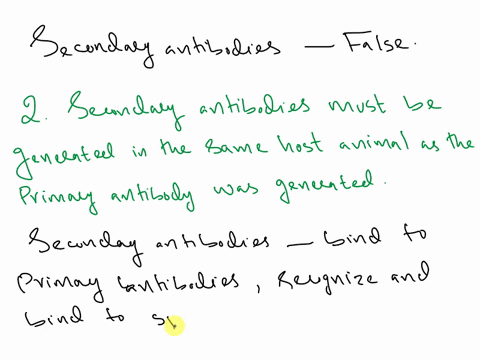 Secondary antibodies — False.
2. Secondary antibodies must be
generated in the same host animal as the
Primary antibody was generated.
Secondary antibodies — bind to
Primary antibodies, recognize and
bind to